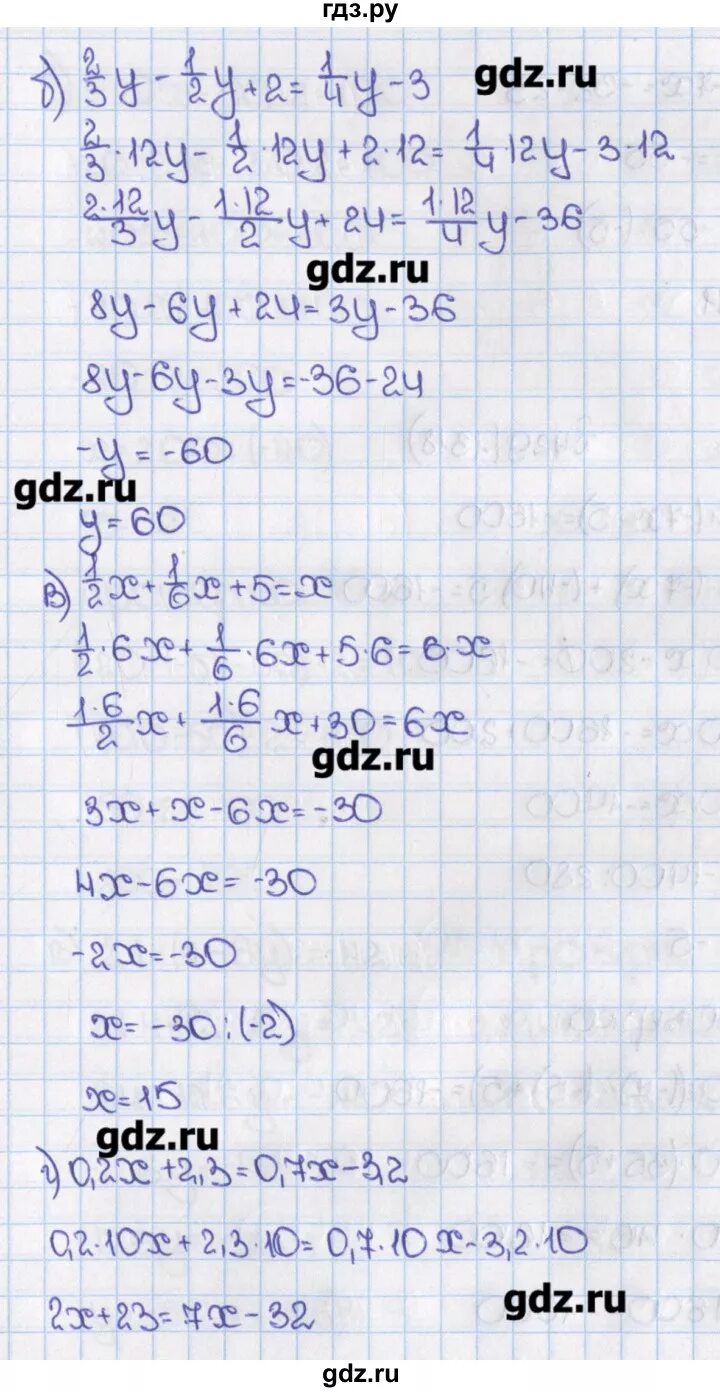 гдз.ру
б) 2/3 y - 1/2 y + 2 = 1/4 y - 3
gdz.ru
2/3 · 12y - 1/2 · 12y + 2 · 12 = 1/4 12y - 3 · 12
2·12/3 y - 1·12/2 y + 24 = 1·12/4 y - 36
gdz.ru
8y - 6y + 24 = 3y - 36
8y - 6y - 3y = -36 - 24
-y = -60
gdz.ru
y = 60
в) 1/2 x + 1/6 x + 5 = x
1/2 · 6x + 1/6 · 6x + 5 · 6 = 6 · x
1·6/2 x + 1·6/6 x + 30 = 6x
gdz.ru
3x + x - 6x = -30
4x - 6x = -30
-2x = -30
x = -30 : (-2)
x = 15
gdz.ru
г) 0,2x + 2,3 = 0,7x - 3,2
0,2 · 10x + 2,3 · 10 = 0,7 · 10x - 3,2 · 10
gdz.ru
2x + 23 = 7x - 32
gdz.ru